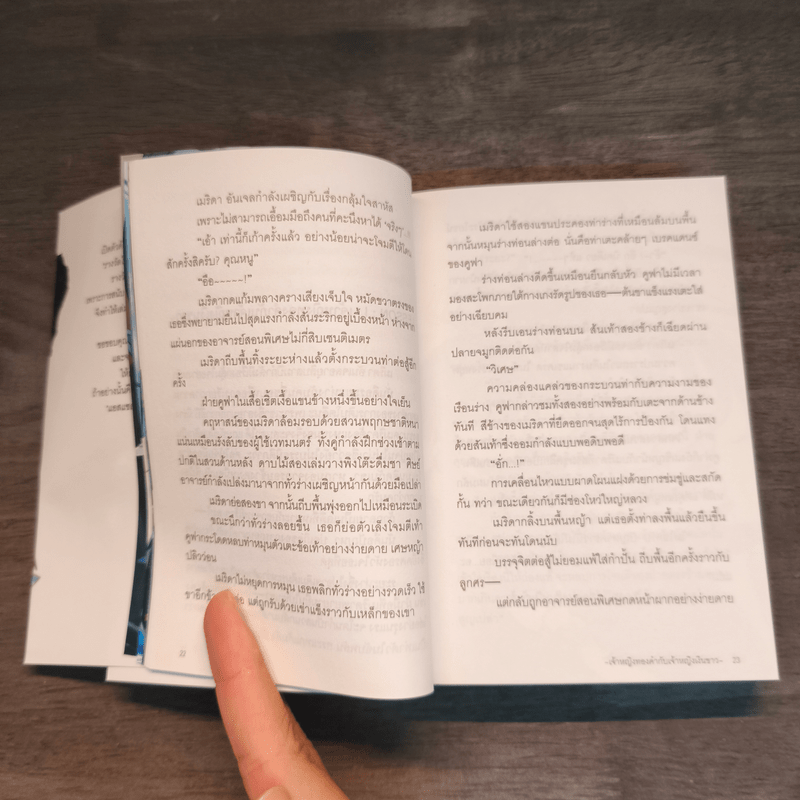 เปิดตัวด้
เพราะการสนับ
ขอขอบคุณ
และข
ให้
ถ้าอย่างนั้นก็
เมริดา อันเจลกำลังเผชิญกับเรื่องกลุ้มใจสาหัส
เพราะไม่สามารถเอื้อมมือถึงคนที่คะนึงหาได้ ‘จริงๆ’
“เอ้า เท่านี้ก็เก้าครั้งแล้ว อย่างน้อยน่าจะโจมตีให้โดน
สักครั้งสิครับ? คุณหนู”
“อือ-----!”
เมริดากดแก้มพลางครางเสียงเจ็บใจ หมัดขวาตรงของ
เธอซึ่งพยายามยื่นไปสุดแรงกำลังสั่นระริกอยู่เบื้องหน้า ห่างจาก
แผ่นอกของอาจารย์สอนพิเศษไม่กี่สิบเซนติเมตร
เมริดาถีบพื้นทิ้งระยะห่างแล้วตั้งกระบวนท่าต่อสู้อีก
ครั้ง
ฝ่ายคูฟาในเสื้อเชิ้ตเงื้อแขนข้างหนึ่งขึ้นอย่างใจเย็น
คฤหาสน์ของเมริดาล้อมรอบด้วยสวนพฤกษชาติหนา
แน่นเหมือนรังลับของผู้ใช้เวทมนตร์ ทั้งคู่กำลังฝึกช่วงเช้าตาม
ปกติในสวนด้านหลัง ดาบไม้สองเล่มวางพิงโต๊ะดื่มชา ศิษย์
อาจารย์กำลังเปล่งมานาจากทั่วร่างเผชิญหน้ากันด้วยมือเปล่า
เมริดาย่อสองขา จากนั้นถีบพื้นพุ่งออกไปเหมือนระเบิด
ขณะนึกว่าทั่วร่างลอยขึ้น เธอก็ย่อตัวเล็งโจมตีเท้า
คูฟากระโดดหลบท่าหมุนตัวเตะข้อเท้าอย่างง่ายดาย เศษหญ้า
ปลิวว่อน
เมริดาไม่หยุดการหมุน เธอพลิกทั่วร่างอย่างรวดเร็ว ใช้
ขาอีก แต่ถูกรับด้วยเข่าแข็งราวกับเหล็กของเขา
22
เมริดาใช้สองแขนประคองท่าร่างที่เหมือนล้มบนพื้น
จากนั้นหมุนร่างท่อนล่างต่อ นั่นคือท่าเตะคล้ายๆ เบรคแดนซ์
ของคูฟา
ร่างท่อนล่างดีดขึ้นเหมือนยืนกลับหัว คูฟาไม่มีเวลา
มองสะโพกภายใต้กางเกงรัดรูปของเธอ—ต้นขาแข็งแรงเตะใส่
อย่างเฉียบคม
หลังรีบเอนร่างท่อนบน ส้นเท้าสองข้างก็เฉียดผ่าน
ปลายจมูกติดต่อกัน
“วิเศษ”
ความคล่องแคล่วของกระบวนท่ากับความงามของ
เรือนร่าง คูฟากล่าวชมทั้งสองอย่างพร้อมกับเตะจากด้านข้าง
ทันที สีข้างของเมริดาที่ยืดออกจนสุดไร้การป้องกัน โดนแทง
ด้วยส้นเท้าซึ่งออมกำลังแบบพอดิบพอดี
“อั่ก...!”
การเคลื่อนไหวแบบผาดโผนแฝงด้วยการข่มขู่และสกัด
กั้น ทว่า ขณะเดียวกันก็มีช่องโหว่ใหญ่หลวง
เมริดากลิ้งบนพื้นหญ้า แต่เธอตั้งท่าลงพื้นแล้วยืนขึ้น
ทันทีก่อนจะทันโดนนับ
บรรจุจิตต่อสู้ไม่ยอมแพ้ใส่กำปั้น ถีบพื้นอีกครั้งราวกับ
ลูกศร—
แต่กลับถูกอาจารย์สอนพิเศษกดหน้าผากอย่างง่ายดาย
-เจ้าหญิงทองคำกับเจ้าหญิงเงินขาว- 23